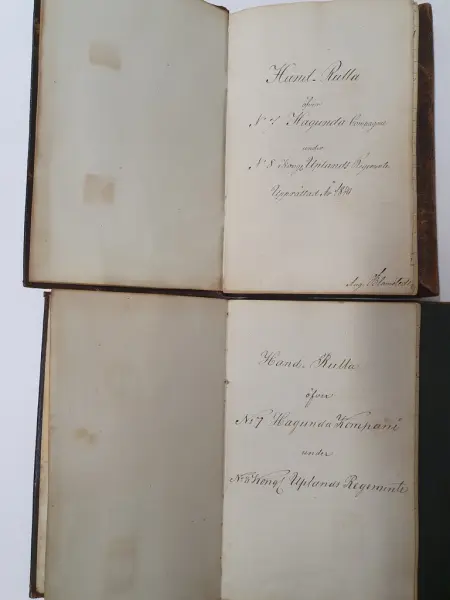 Hand-Rulla
öfver
No 7 Hagunda Compagnie
under
No 8 Kongl Uplands Regemente
Upprättad År
Aug.
Hand-Rulla
öfver
No 7 Hagunda Kompani
under
No 8 Kongl Uplands Regemente